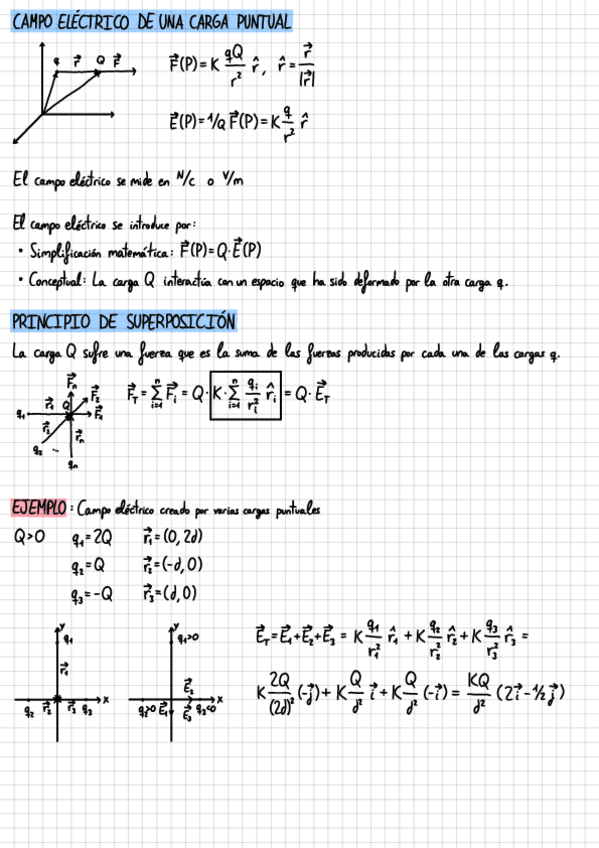 CAMPO ELÉCTRICO DE UNA CARGA PUNTUAL
q r⃗ Q F⃗
F⃗(P) = K qQ/r² r̂, r̂ = r⃗/|r⃗|
E⃗(P) = 1/Q F⃗(P) = K q/r² r̂
El campo eléctrico se mide en N/c o V/m
El campo eléctrico se introduce por:
• Simplificación matemática: F⃗(P) = Q·E⃗(P)
• Conceptual: La carga Q interactúa con un espacio que ha sido deformado por la otra carga q.
PRINCIPIO DE SUPERPOSICIÓN
La carga Q sufre una fuerza que es la suma de las fuerzas producidas por cada una de las cargas q.
F⃗n
r⃗1 Q F⃗2
q1 F⃗1
r⃗2 r⃗n
q2 ...
qn
F⃗T = Σ(i=1, n) F⃗i = Q · K · Σ(i=1, n) qi/ri² r̂i = Q · E⃗T
EJEMPLO: Campo eléctrico creado por varias cargas puntuales
Q>0 q1 = 2Q r⃗1 = (0, 2d)
q2 = Q r⃗2 = (-d, 0)
q3 = -Q r⃗3 = (d, 0)
y
q1
r⃗1
x
q2 r⃗2 r⃗3 q3
y
q1>0
E⃗2
x
q2>0 E⃗1 E⃗3 q3<0
E⃗T = E⃗1 + E⃗2 + E⃗3 = K q1/r1² r̂1 + K q2/r2² r̂2 + K q3/r3² r̂3 =
K 2Q/(2d)² (-j⃗) + K Q/d² i⃗ + K Q/d² (-i⃗) = KQ/d² (2i⃗ - 1/2 j⃗)